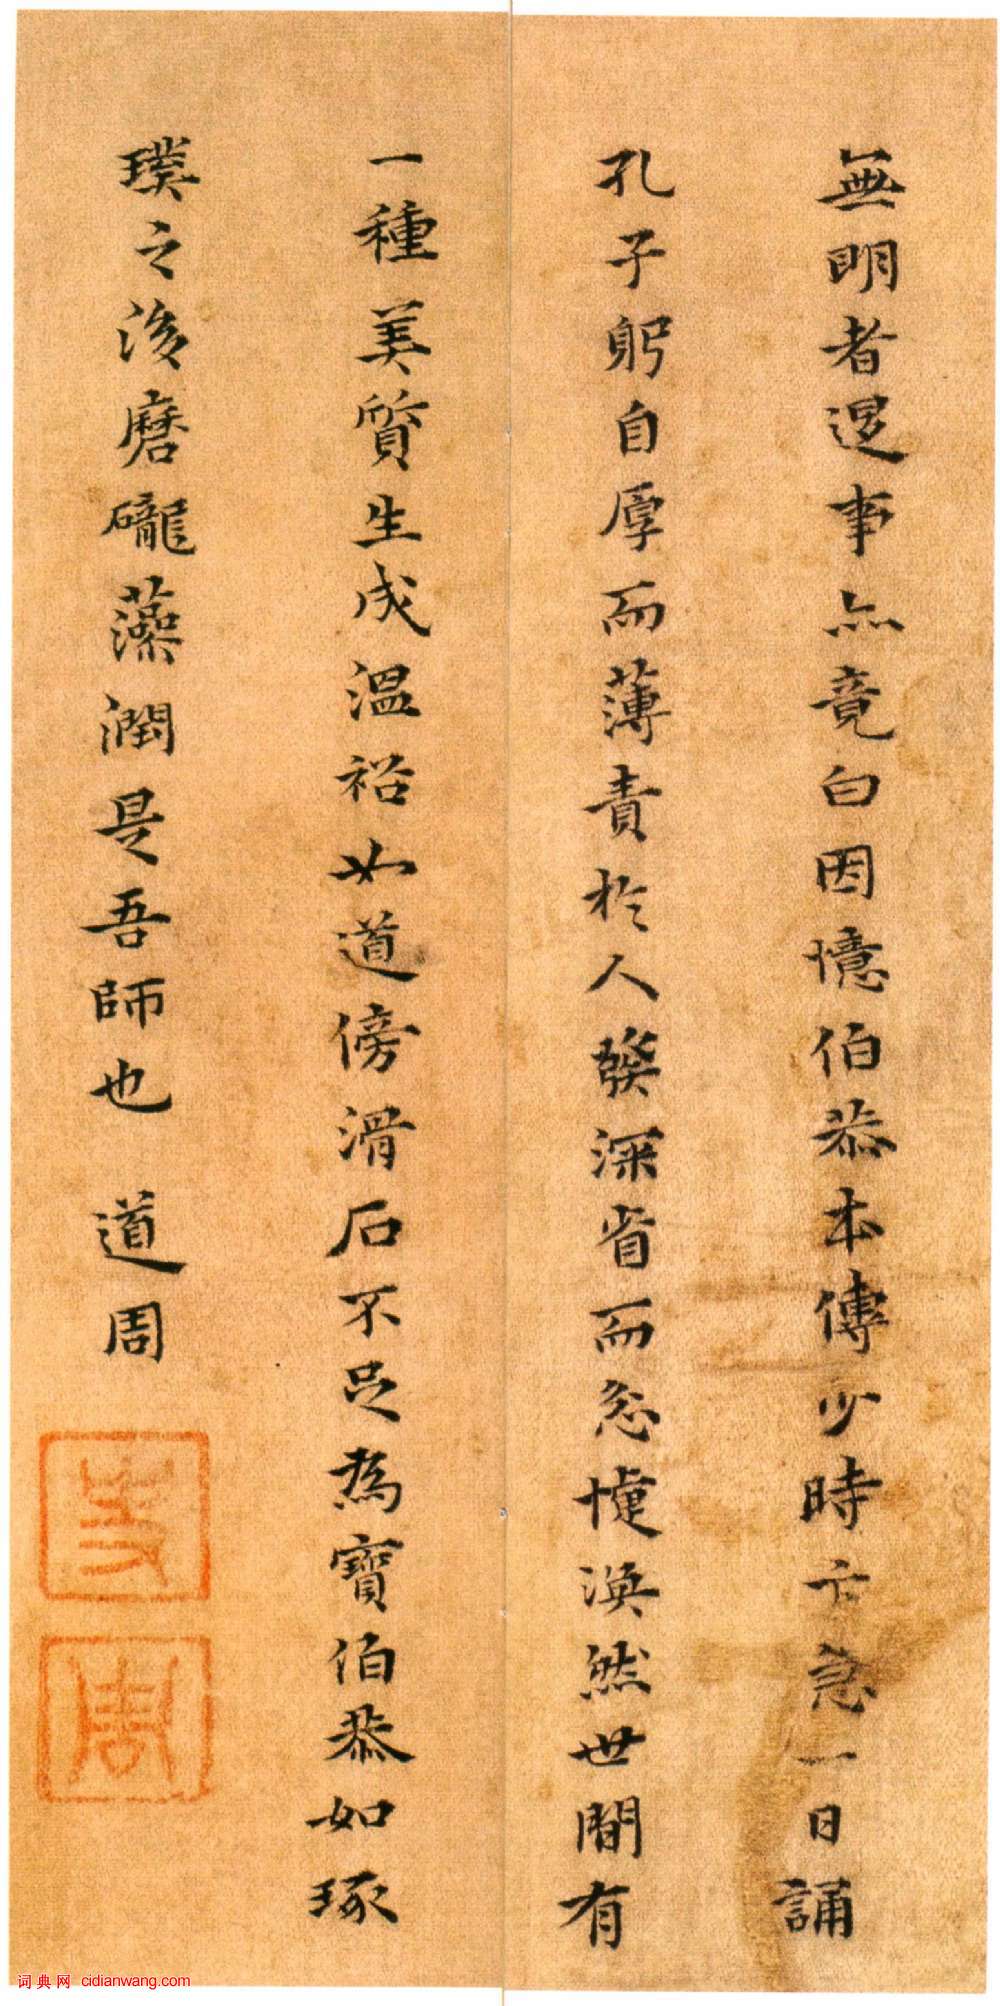 無明者退事亦竟白因憶伯恭本傳少時卞急一日誦
孔子躬自厚而薄責於人發深省而忿懥渙然世間有
一種美質生成溫裕如道傍滑石不足為寶伯恭如琢
璞之後磨礲藻潤是吾師也 道周
周
词典网 cidianwang.com